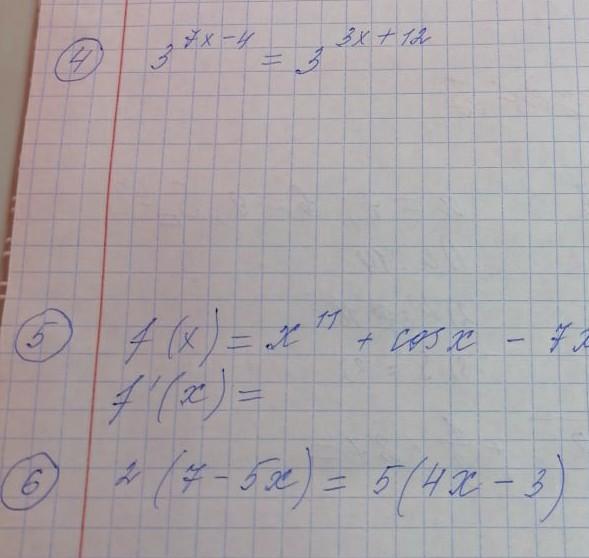 4 3^(7x-4) = 3^(3x+12)
5 f(x) = x^11 + cos x - 7x
f'(x) =
6 2(7-5x) = 5(4x-3)